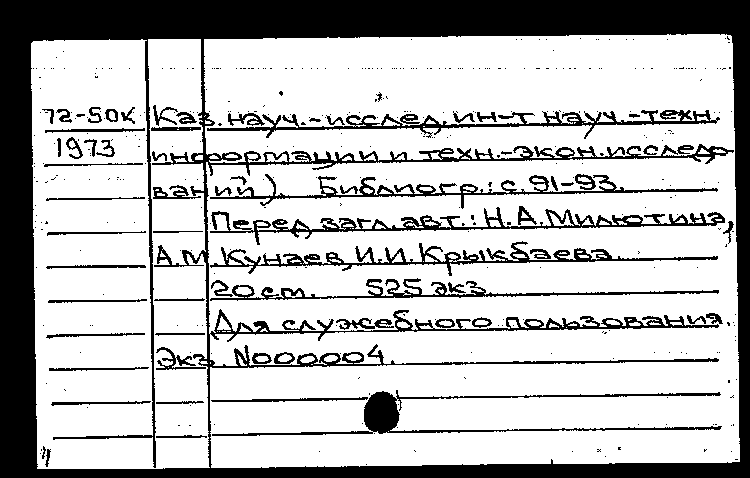 72-50к Каз. науч.-исслед. ин-т науч.-техн.
1973 информации и техн.-экон. исследо-
ваний). Библиогр.: с. 91-93.
Перед загл. авт.: Н.А. Милютина,
А.М. Кунаев, И.И. Крыкбаева.
20 см. 525 экз.
Для служебного пользования.
Экз. N000004.